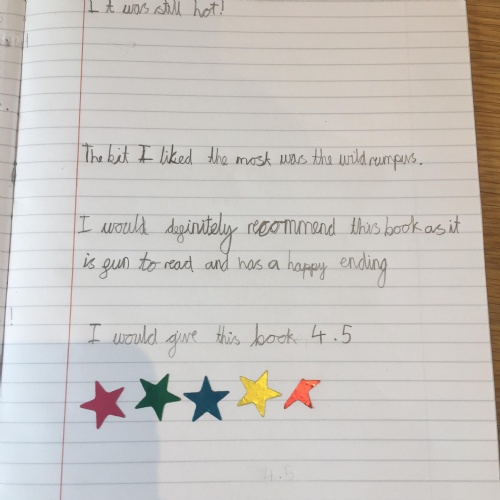 I t was still hot!
The bit I liked the most was the wild rumpus.
I would definitely recommend this book as it
is fun to read and has a happy ending
I would give this book 4.5
4.5